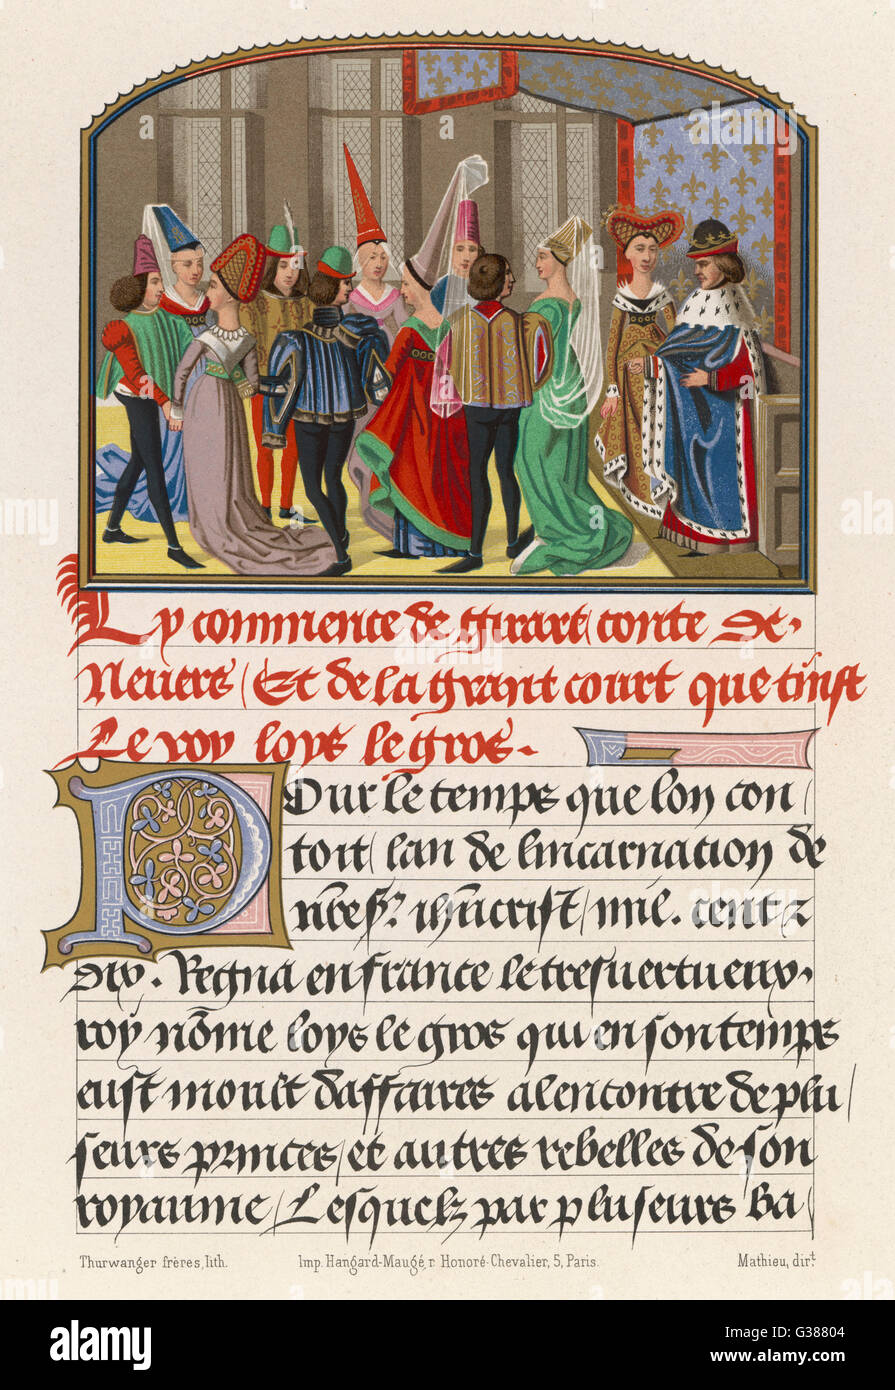 Cy commence de girart conte de
Nevers / Et de la grant court que tinst
Le roy loys le gros.
Pour le temps que lon con /
toit / lan de lincarnation de
nr̄e sr. ih̄ucrist / mil. cent z
dix. Regna en france le tresvertueux
roy nōme loys le gros qui en son temps
eust moult daffaires alencontre de plu /
seurs princes / et autres rebelles de son
royaume / Lesquelz par pluseurs ba /
Thurwanger frères, lith. Imp. Hangard-Maugé, r. Honoré-Chevalier, 5, Paris. Mathieu, dirt.
alamy
Image ID: G38804
www.alamy.com